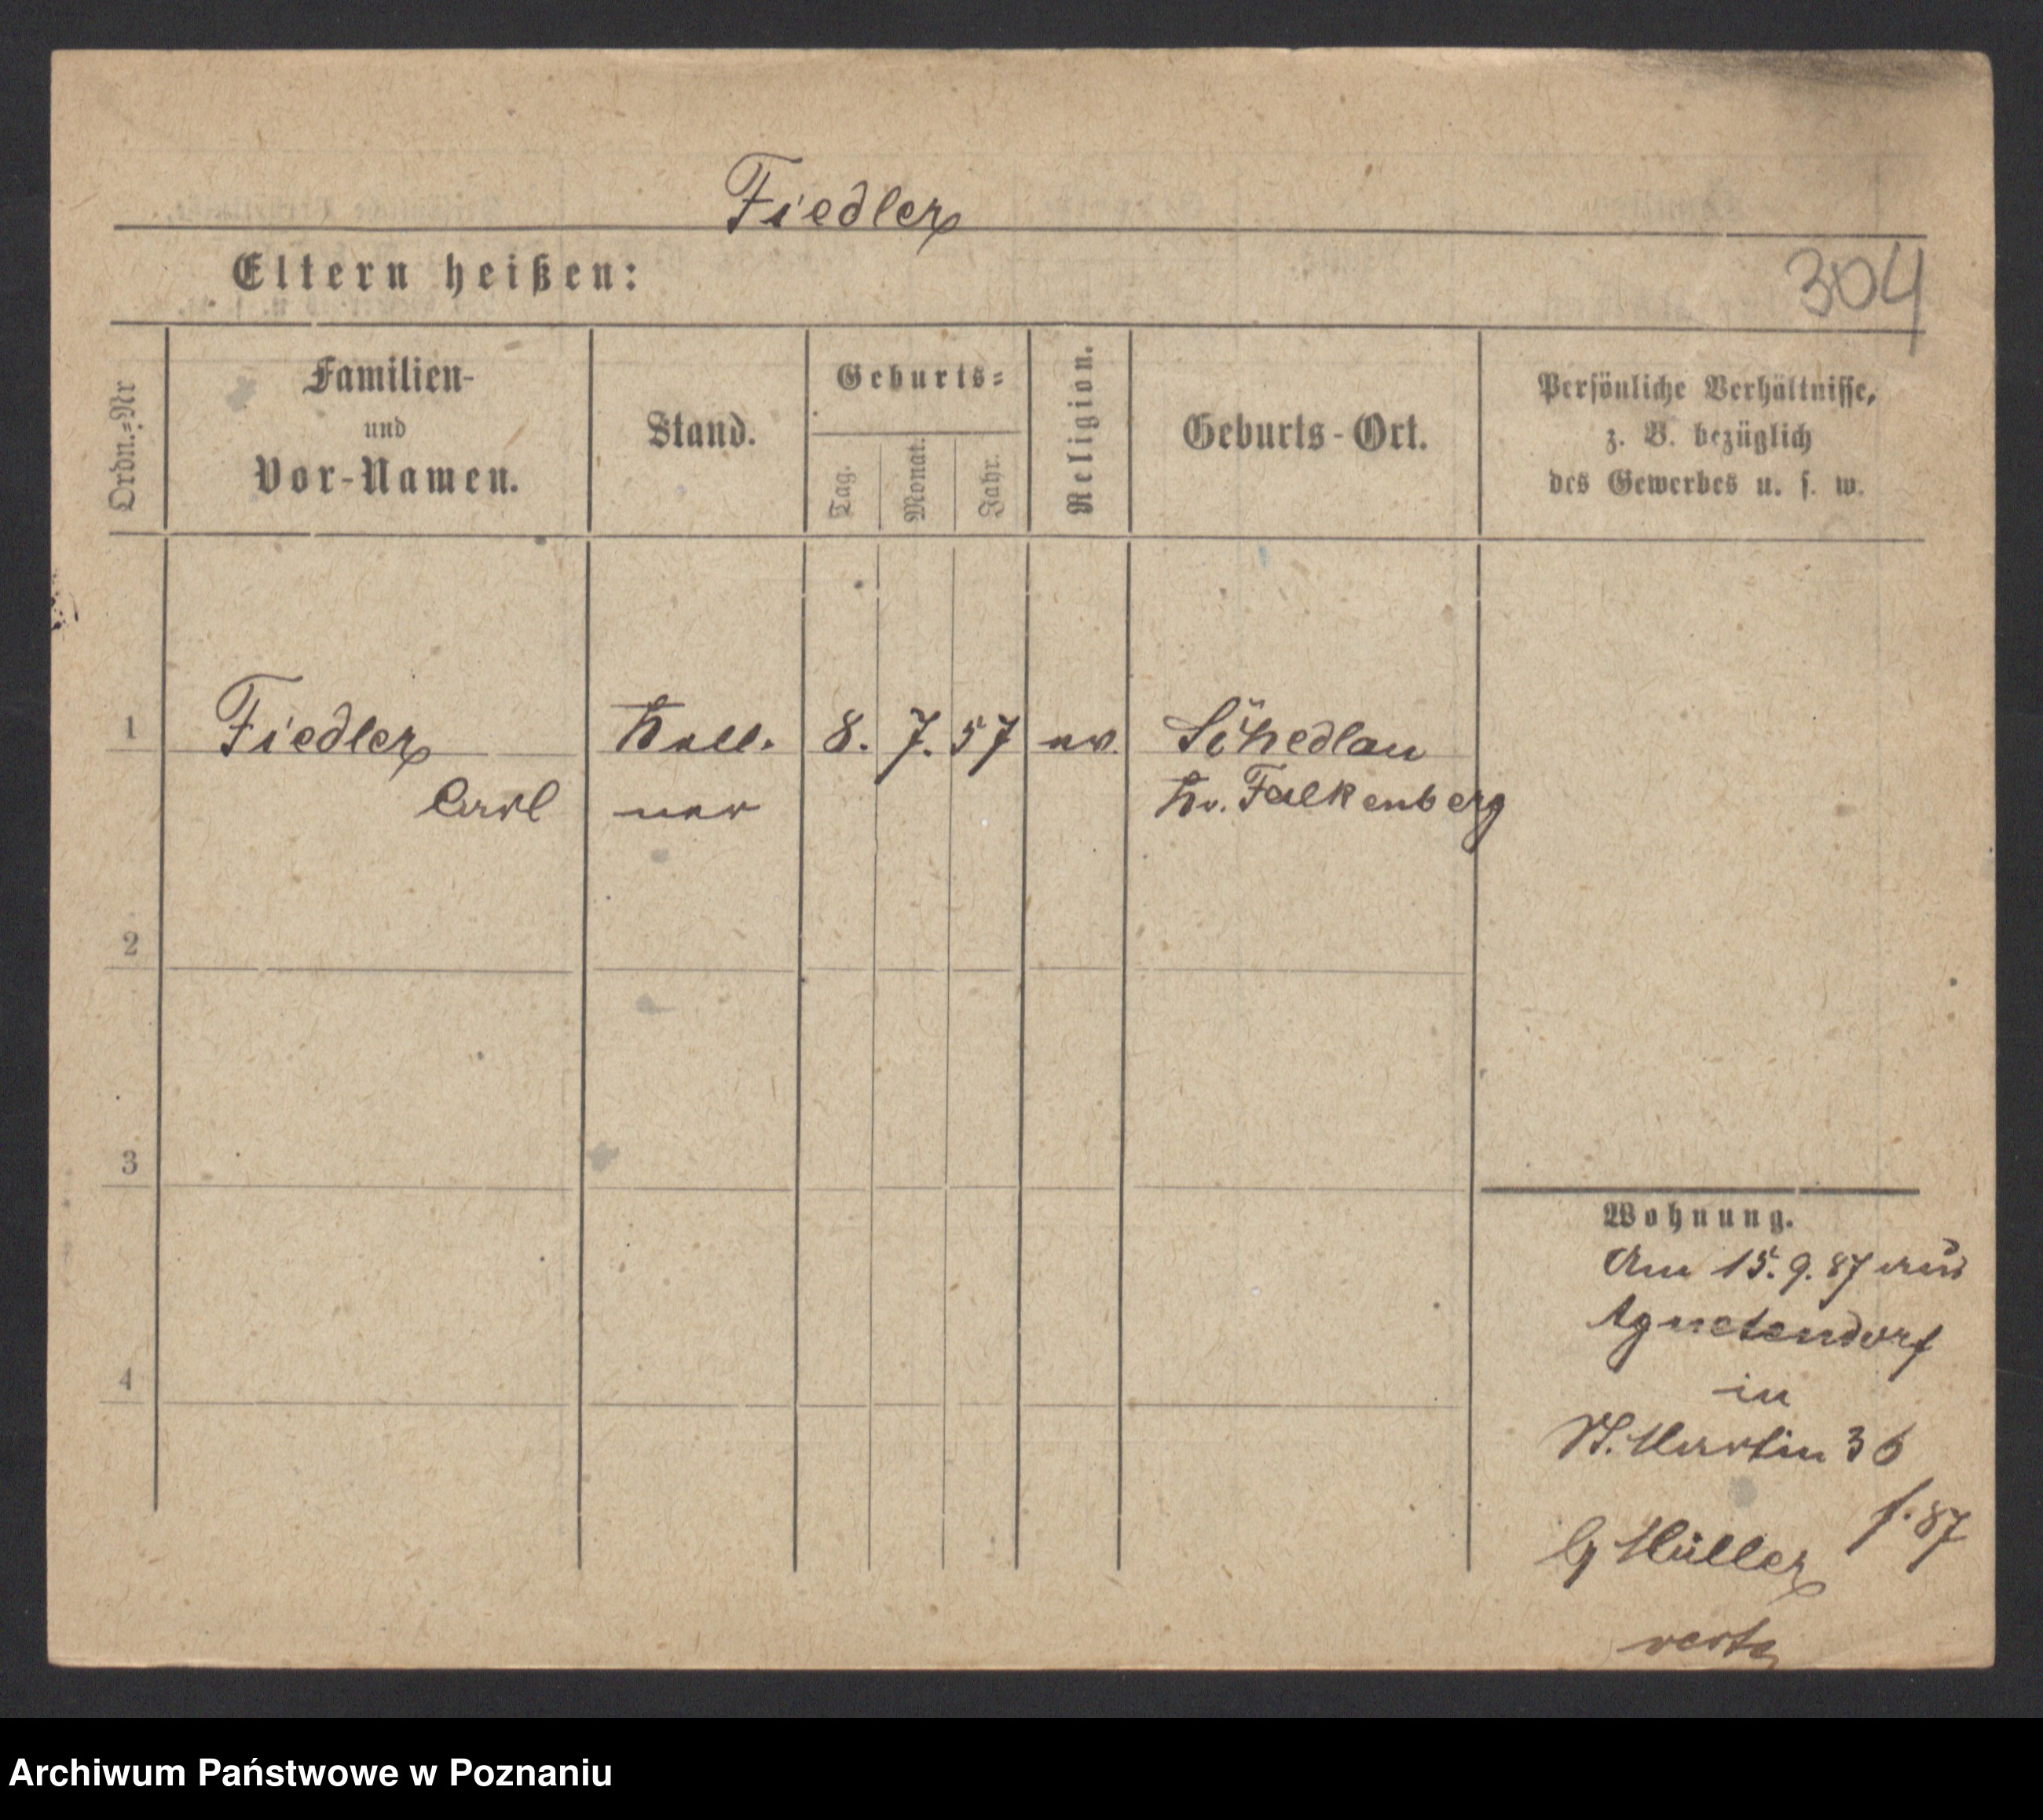 Fiedler
Eltern heißen:
304
Ordn.-Nr
Familien-
und
Vor-Namen.
Stand.
Geburts-
Tag.
Monat.
Jahr.
Religion.
Geburts-Ort.
Persönliche Verhältnisse,
z. B. bezüglich
des Gewerbes u. s. w.
1 Fiedler Kell- 8. 7. 57 ev. Schedlau
Carl ner Kr. Falkenberg
2
3
4
Wohnung.
Am 15.9.87 aus
Agnetendorf
in
St. Martin 36
b/ Müller f. 87
Archiwum Państwowe w Poznaniu